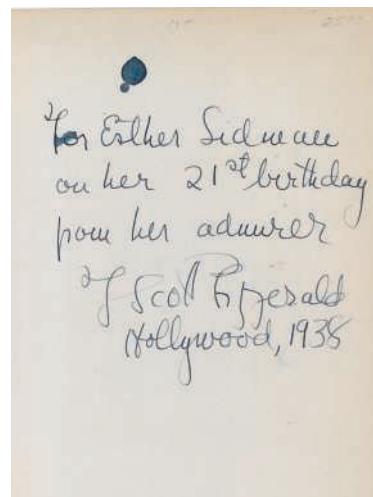 For Esther Sidman
on her 21st birthday
from her admirer
F Scott Fitzgerald
Hollywood, 1938